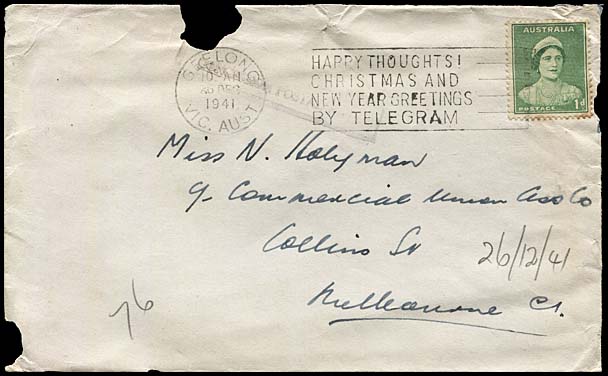 GEELONG
10-AM
26 DEC
1941
VIC. AUST
HAPPY THOUGHTS!
CHRISTMAS AND
NEW YEAR GREETINGS
BY TELEGRAM
AUSTRALIA
POSTAGE 1d
Miss N. Holyman
c/- Commercial Union Ass Co
Collins St
26/12/41
Melbourne C1.
76